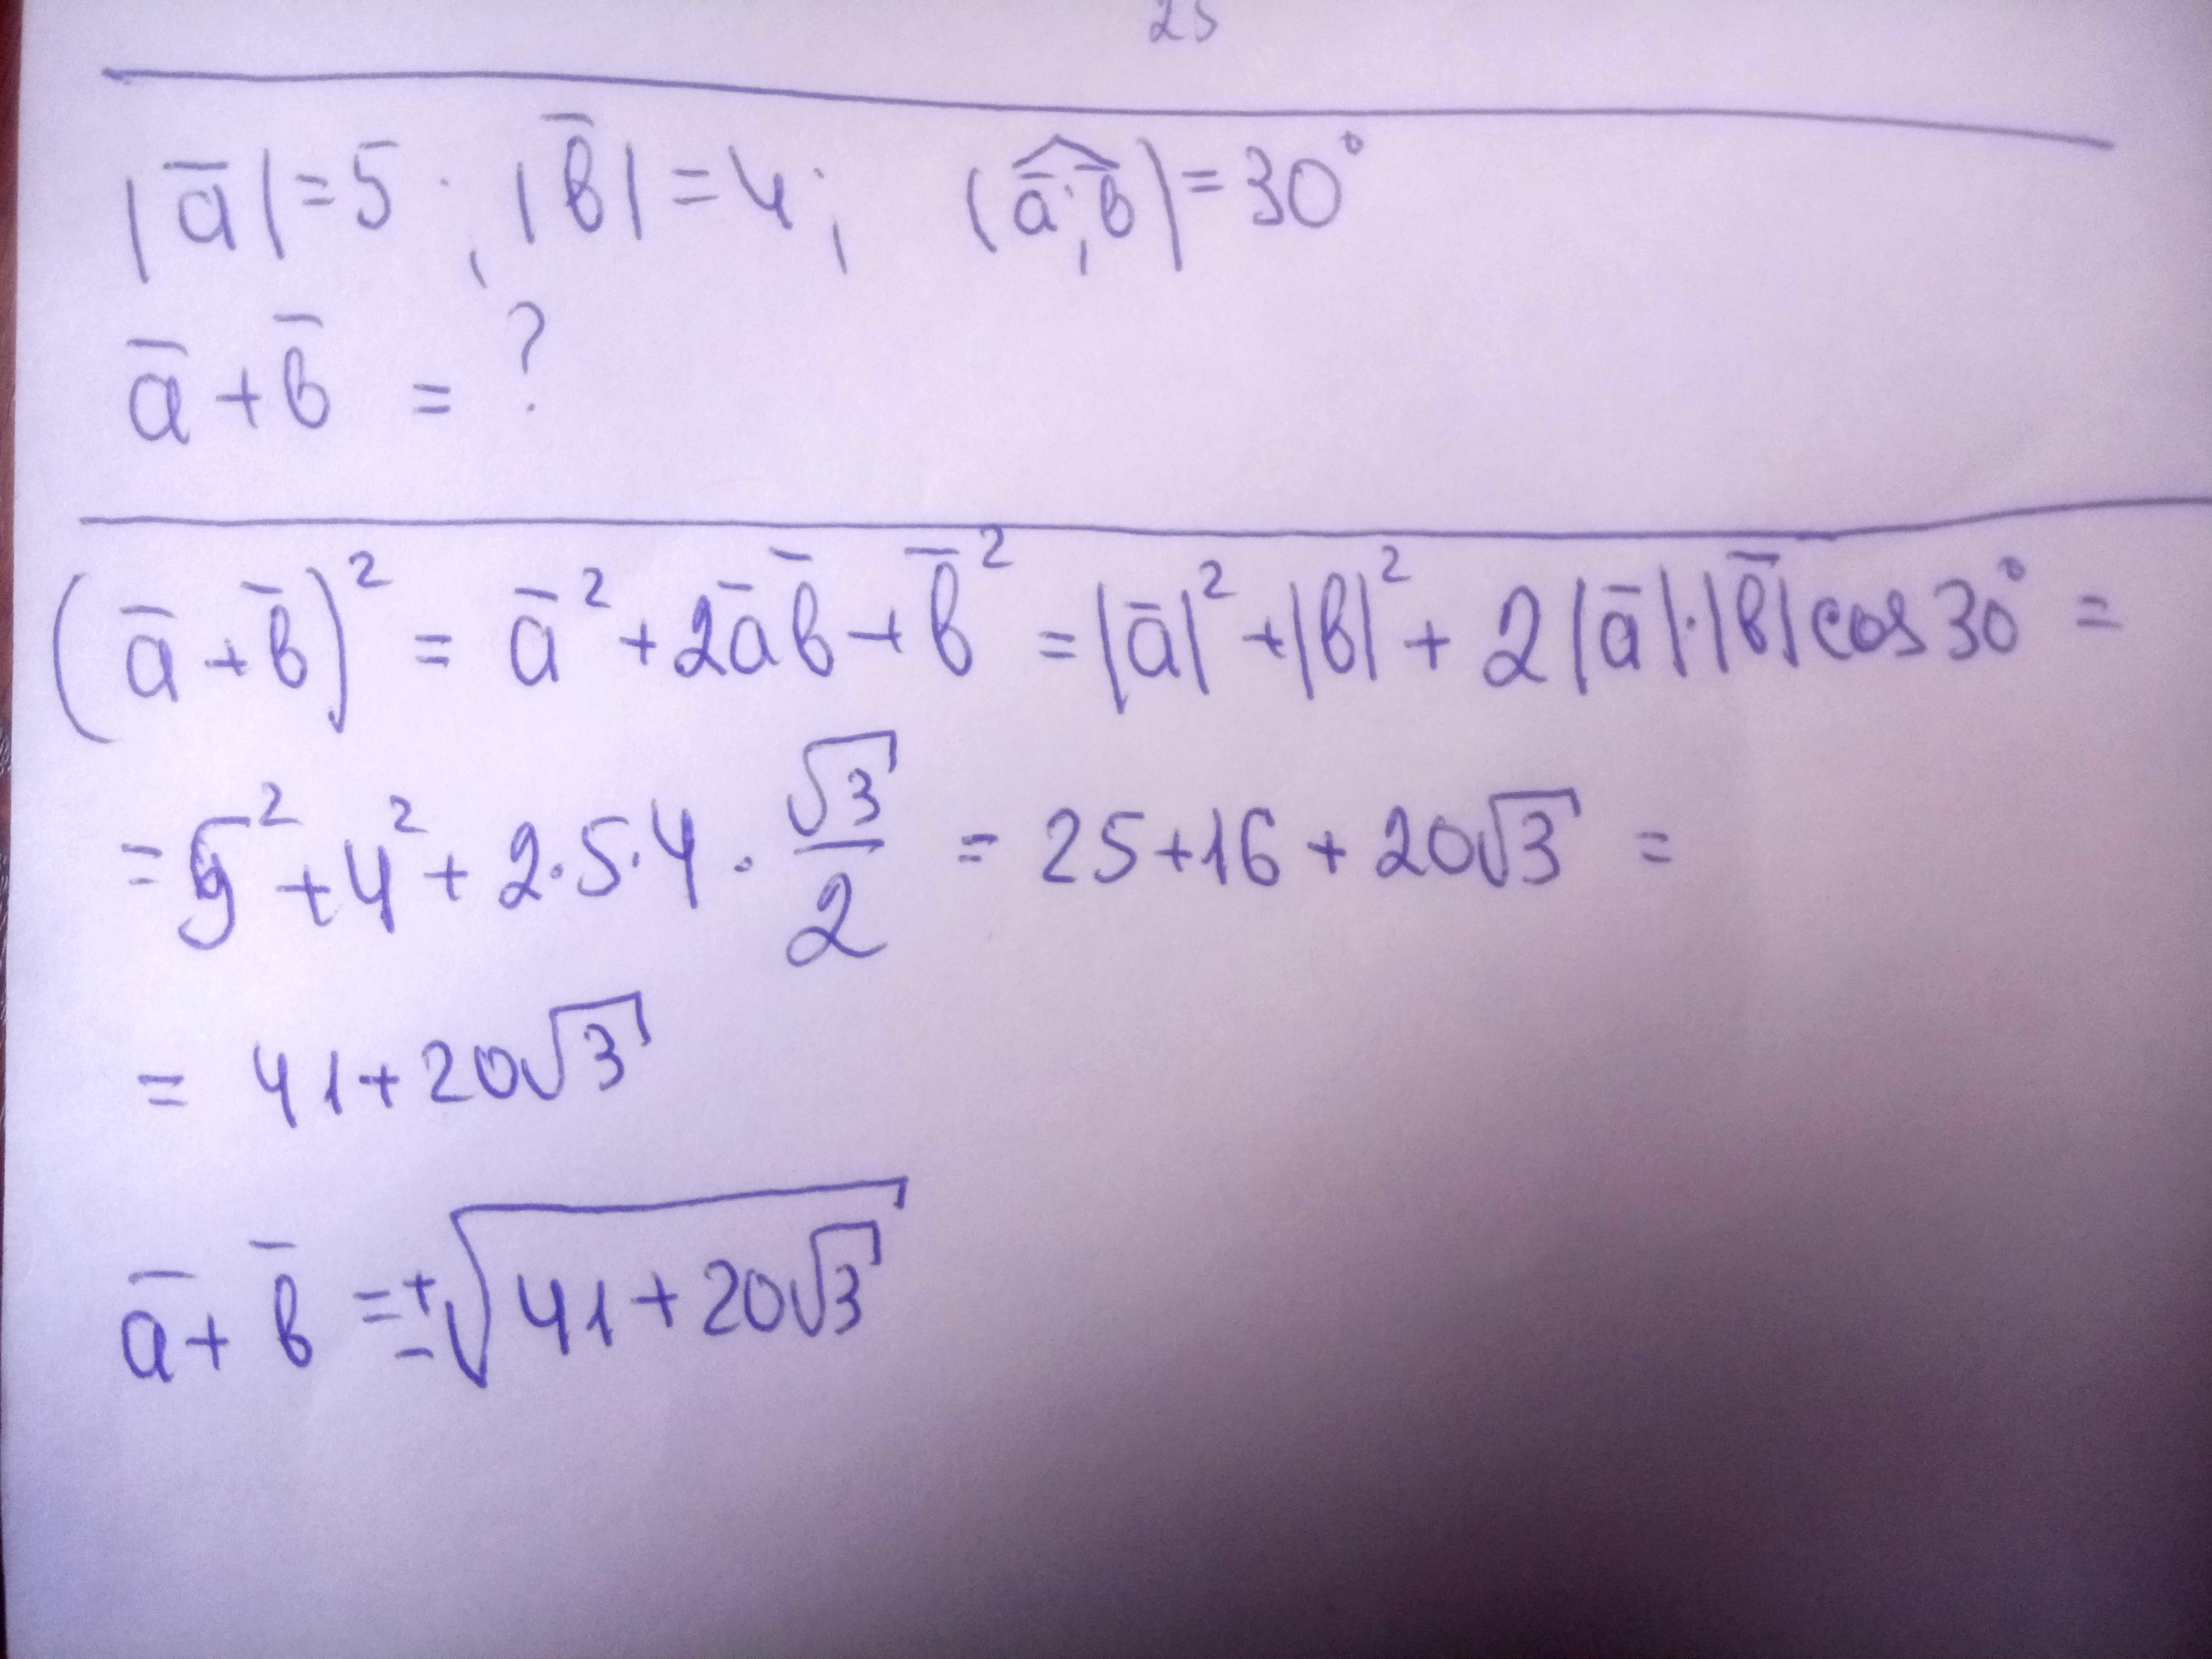 25
|a̅| = 5 ; |b̅| = 4 ; (a̅ ; b̅) = 30°
a̅ + b̅ = ?
(a̅ + b̅)² = a̅² + 2a̅b̅ + b̅² = |a̅|² + |b|² + 2|a̅|·|b̅| cos 30° =
= 5² + 4² + 2·5·4 · √3/2 = 25 + 16 + 20√3 =
= 41 + 20√3
a̅ + b̅ = ±√(41 + 20√3)